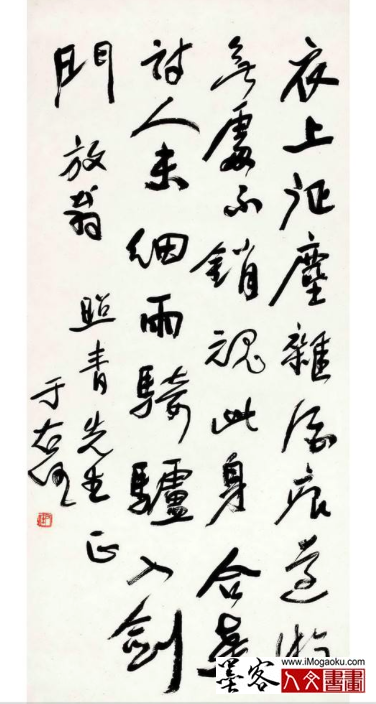 衣上征塵雜酒痕遠游
無處不銷魂此身合是
詩人未細雨騎驢入劍
門 放翁 照青先生正
于右任
墨客
www.iMogaoku.com
人文書畫